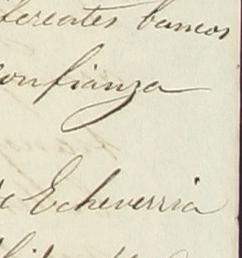 iferentes bancos
confianza
de Echeverria